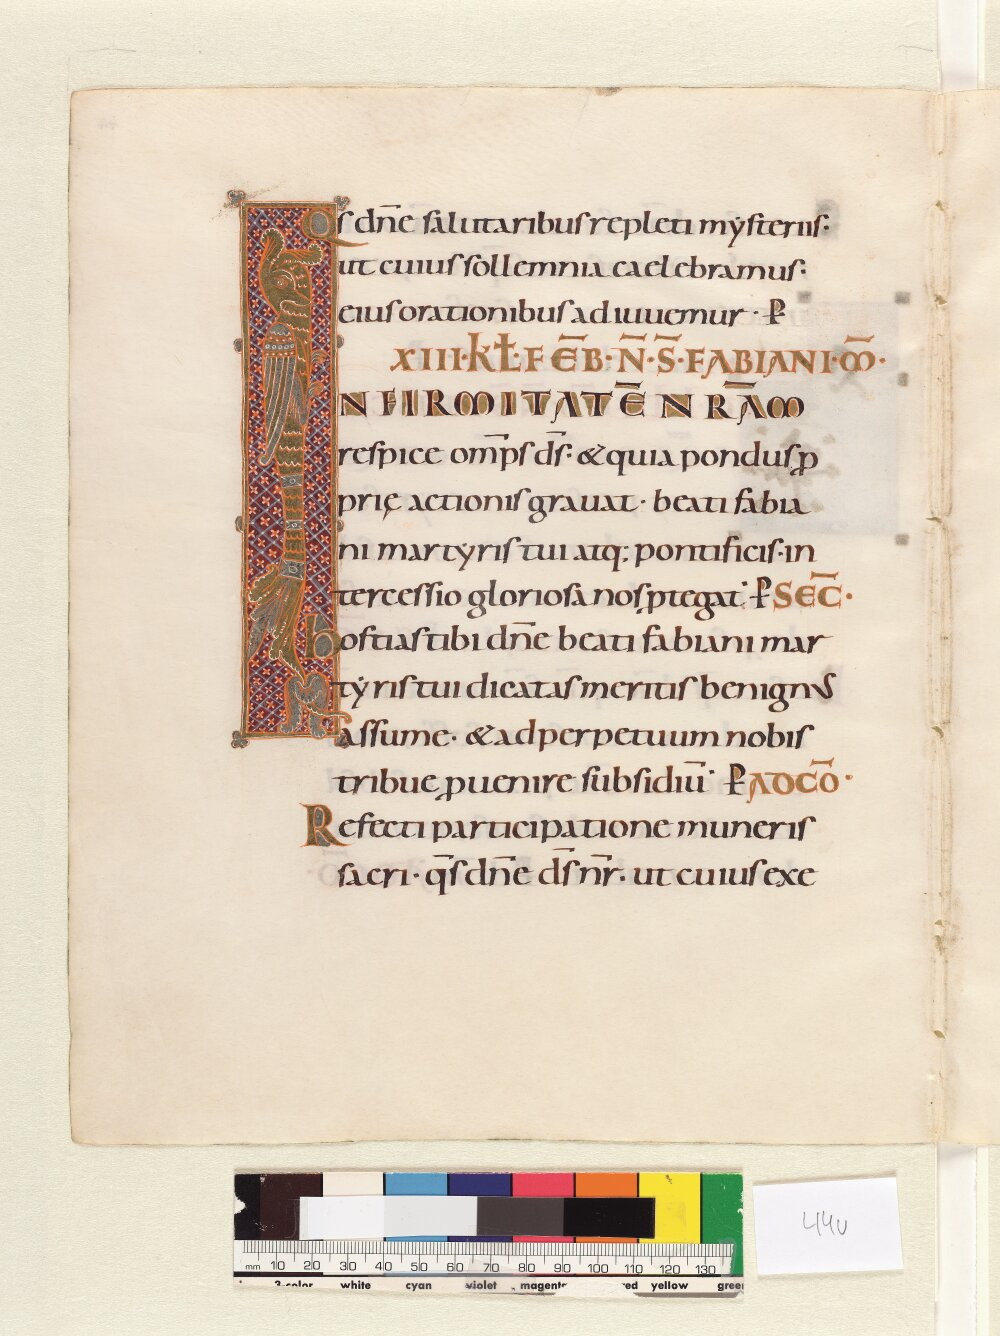 Qs dn̄e salutaribus repleti mẏsteriis·
ut cuius sollemnia caelebramus·
eius orationibus adiuuemur· P̄
XIII·KL̄·FEB̄·N̄·S̄·FABIANI·M̄·
INFIRMITATĒ NRĀM
respice omp̄s ds̄· &quia pondus ꝓ
prię actionis grauat· beati fabia
ni martẏris tui atq; pontificis·in
tercessio gloriosa nos ꝓtegat· P̄ SEC̄·
hostias tibi dn̄e beati fabiani mar
tẏris tui dicatas meritis benignus
assume· &ad perpetuum nobis
tribue ꝓuenire subsidiū· P̄ ADCŌ·
Refecti participatione muneris
sacri· qs̄ dn̄e ds̄ nr̄· ut cuius exe
44v
mm 10 20 30 40 50 60 70 80 90 100 110 120 130
3-color white cyan violet magenta red yellow green